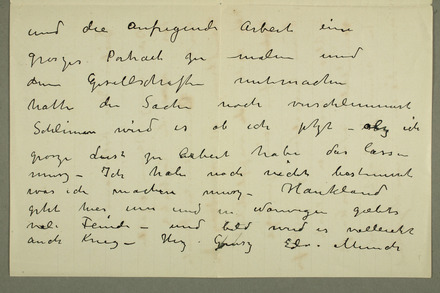 und die aufregende Arbeit ein
groszes Portrait zu malen und
dem Gesellschaften mitmachen
hatte die Sachen noch verschlimmert
Schlimm wird es ob ich jetzt – ich
grosze Lust zu Arbeit habe das lassen
musz – Ich habe noch nicht bestimmt
was ich machen musz –
geht hier uns und in Norwegen giebts
viele Feinde – und bald wird es vielleicht
auch Krieg – Hrz. Grusz Edv. Munch